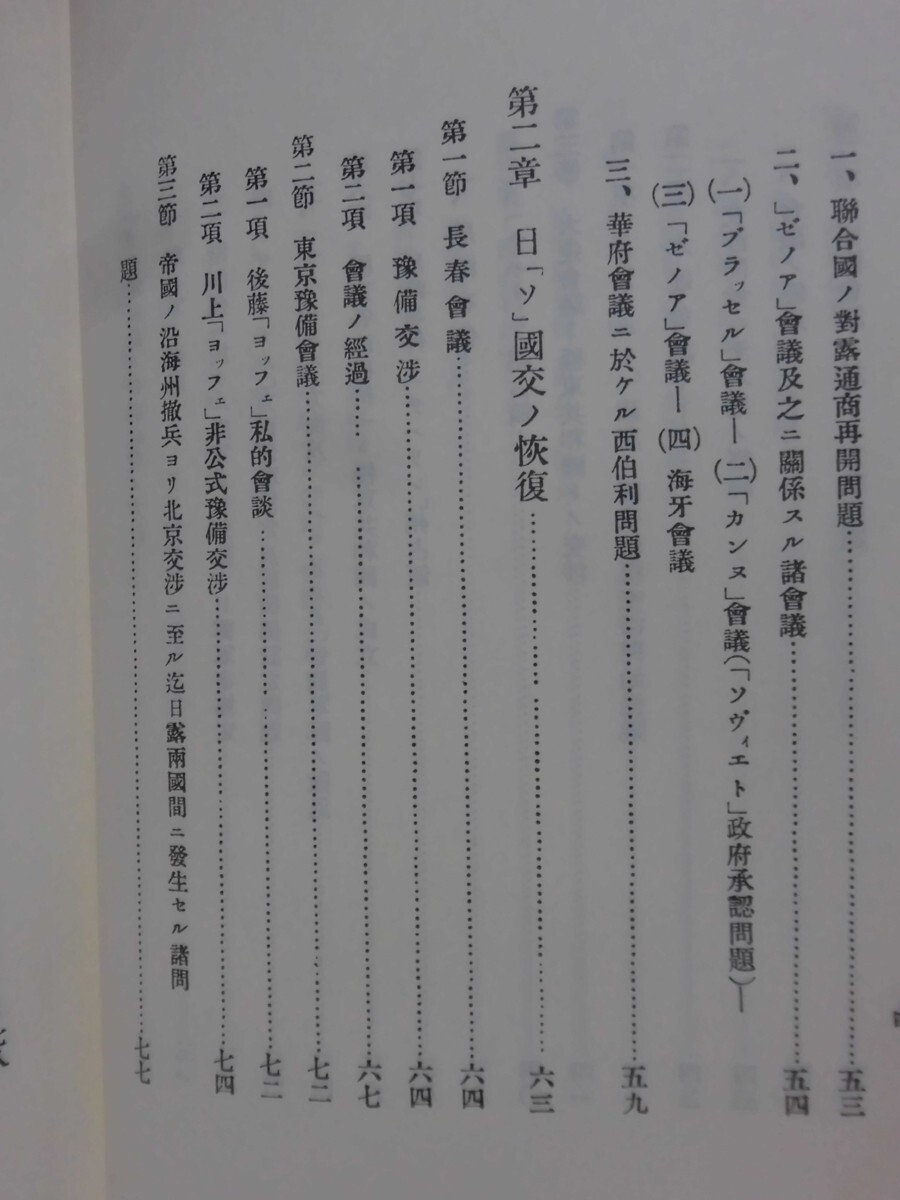 一、聯合國ノ對露通商再開問題……五三
二、」ゼノア」會議及之ニ關係スル諸會議……五四
(一)「ブラッセル」會議―(二)「カンヌ」會議(「ソヴィエト」政府承認問題)―
(三)「ゼノア」會議―(四)海牙會議
三、華府會議ニ於ケル西伯利問題……五九
第二章 日「ソ」國交ノ恢復……六三
第一節 長春會議……六四
第一項 豫備交涉……六四
第二項 會議ノ經過……六七
第二節 東京豫備會議……七二
第一項 後藤「ヨッフェ」私的會談……七二
第二項 川上「ヨッフェ」非公式豫備交涉……七四
第三節 帝國ノ沿海州撤兵ヨリ北京交涉ニ至ル迄日露兩國間ニ發生セル諸問
題……七七